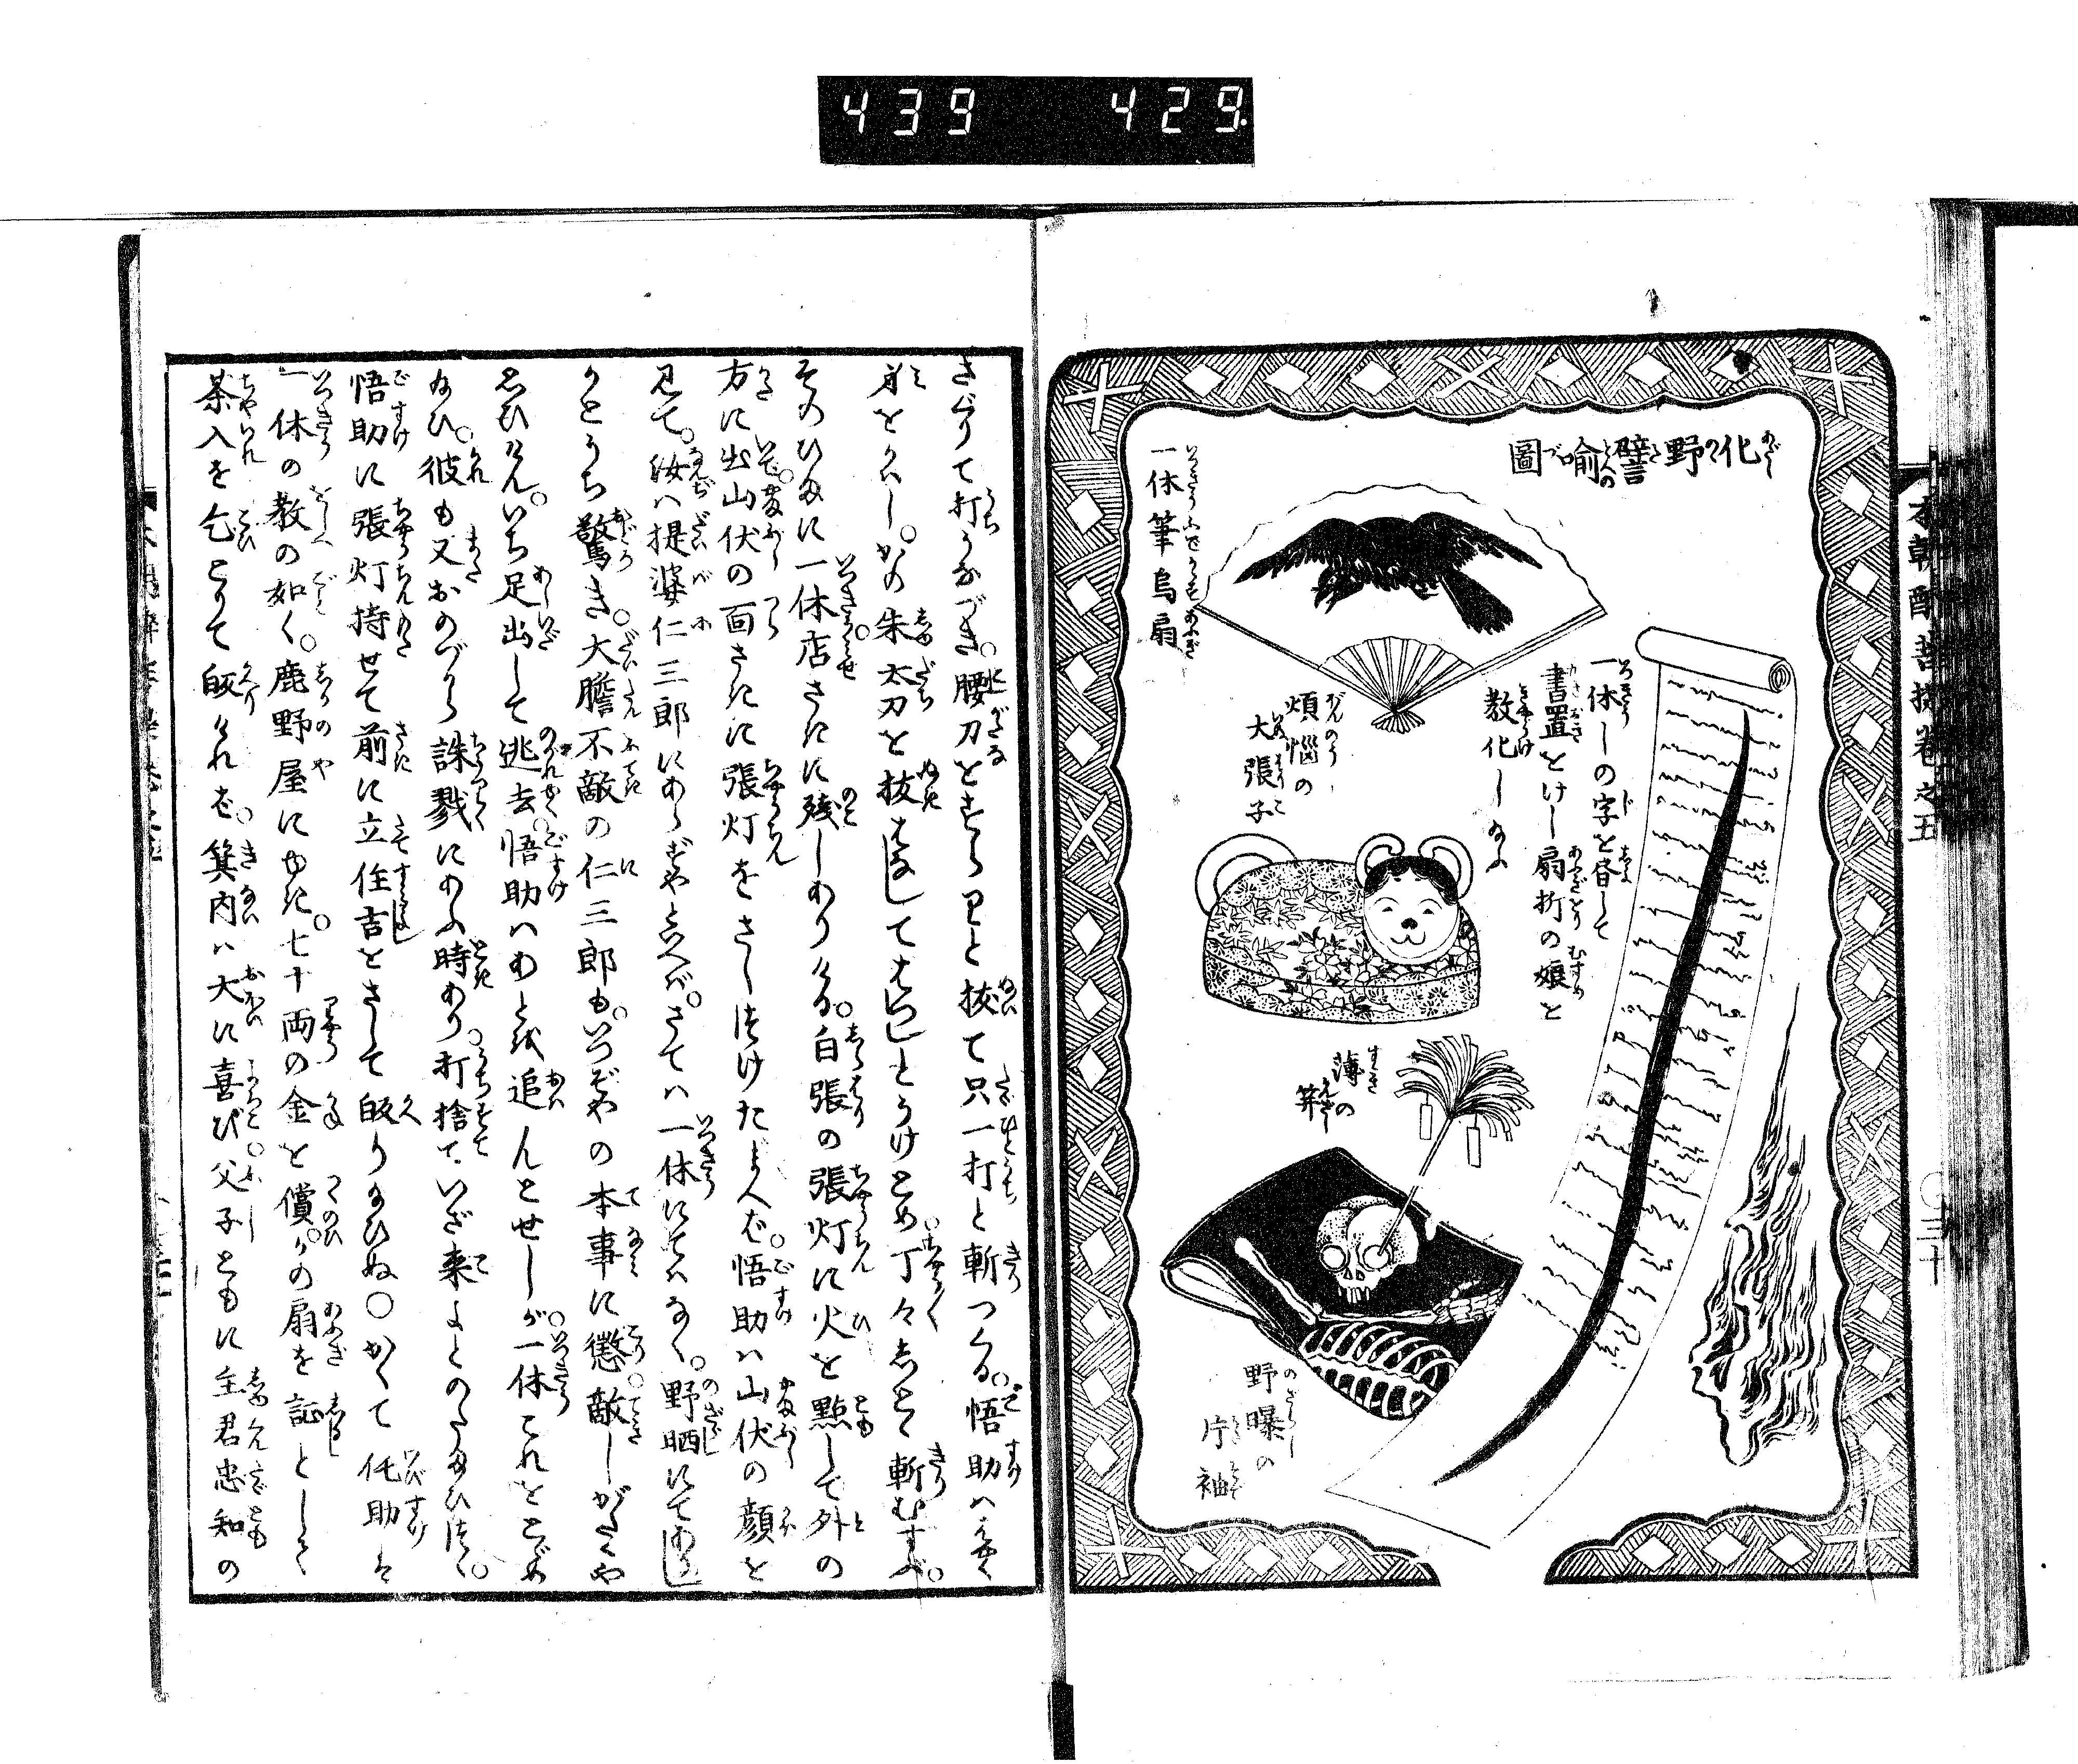 439 429
本朝酔菩提巻之五
〇三十
化野譬喩圖
一休筆烏扇
一休しの字を書して
書置とけし扇折の娘を
教化し給ふ
煩悩の
犬張子
薄の
簪
野曝の
片袖
さぐりて打うなづき。腰刀をすらりと抜て只一打と斬つくる。悟助ハ
身をかはし。かの朱太刀を抜はなしてはつしとうけとめ丁々
そのひまに一休店さきに残しありける。白張の張灯に火を點して外の
方に出山伏の面さきに張灯をさしつけたまへば。悟助ハ山伏の顔を
見て。汝ハ提婆仁三郎にあらずやといへば。さてハ一休にてハなく。野晒にてありし
かとうち驚き。大膽不敵の仁三郎も。いつぞやの本事に懲。敵しがたくや
思ひけん。いち足出して逃去。悟助ハあとを追んとせしが。一休これをとゞめ
給ひ。彼も又おのづから誅戮にあふ時あり。打捨ていざ来よとのたまひつゝ。
悟助に張灯持せて前に立住吉をさして皈り給ひぬ〇かくて佗助は
一休の教の如く。鹿野屋にゆき。七十両の金を償。かの扇を証として
茶入を乞とりて皈りければ。箕内ハ大に喜び。父子ともに主君忠知の